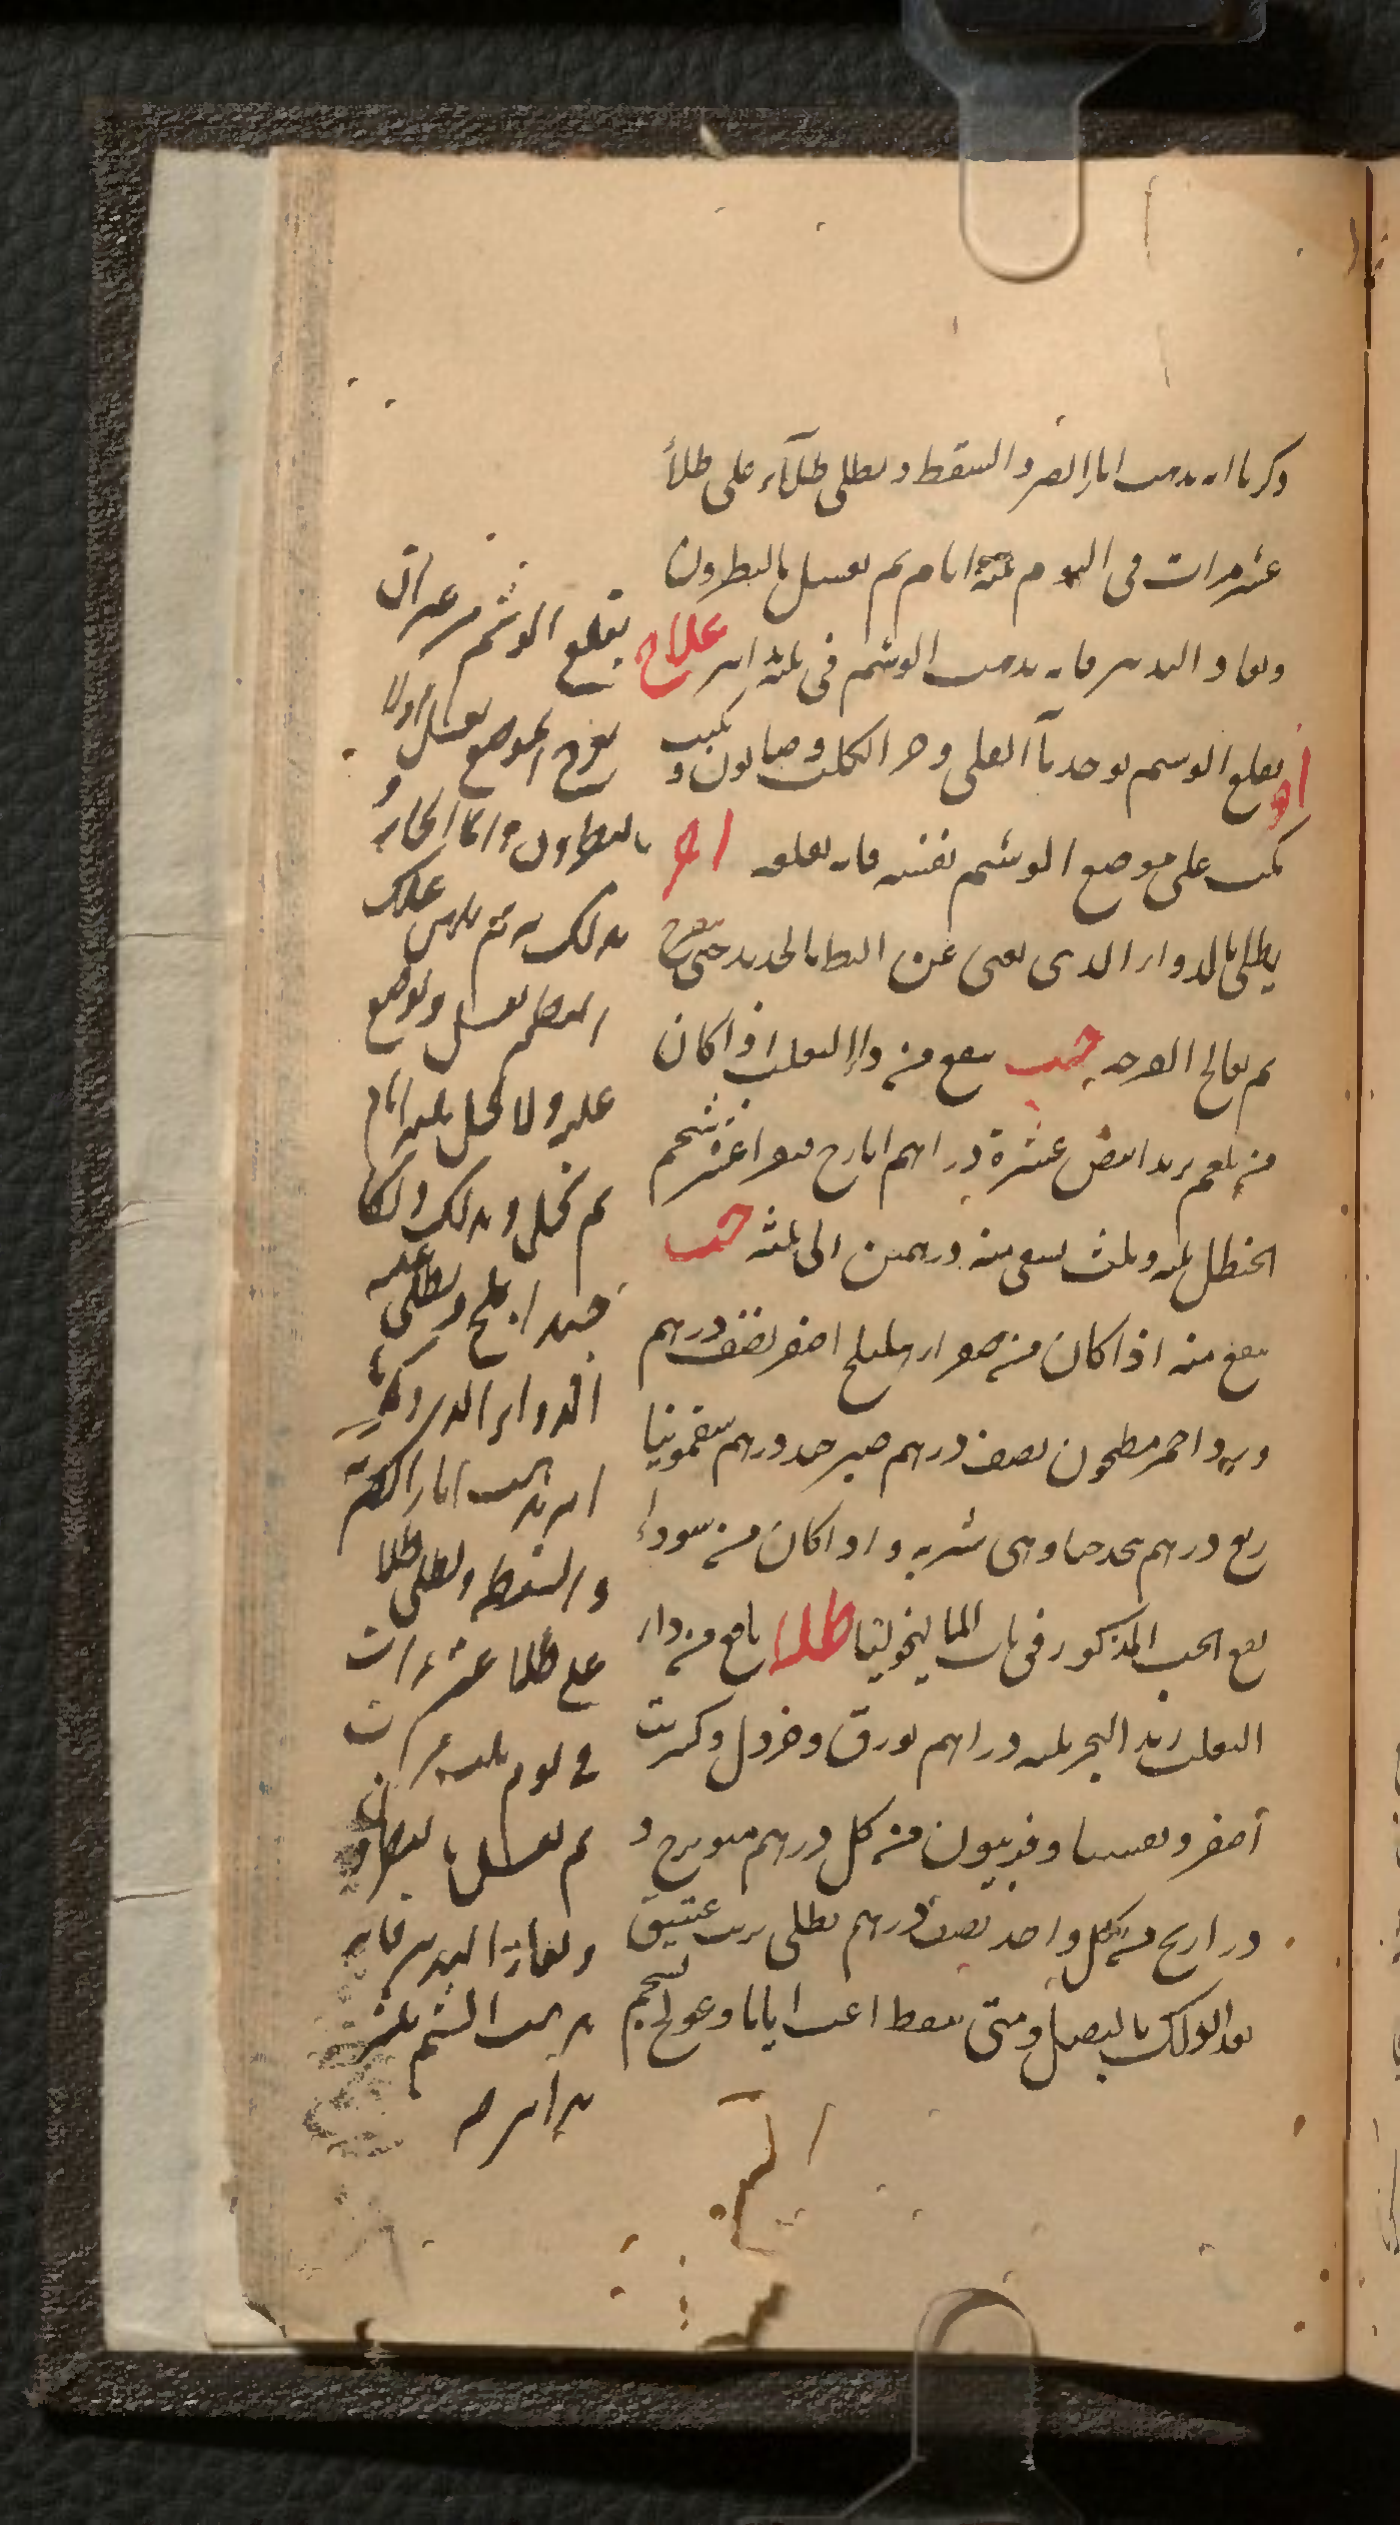 ذكرنا انه يذهب اثار الضربه والسقطه ويطلى طلآء على طلأ
عشر مرات فى اليوم ثلثة ايام ثم يغسل بالنطرون
ويعاود التدبير فانه يذهب الوشم فى ثلثة ايام علاج
او يقلع الوشم يوخذ ماآ القلى وحر الكلس وصابون و يكتب
يكتب على موضع الوشم نفسه فانه يقلعه اخر
يطلى بالدواء الذى يغنى عن البط بالحديد حتى يتقرح
ثم يعالج القرحه حب ينفع من داا الثعلب اذا كان
من بلغم تربد ابيض عشرة دراهم ايارج فيقرا عشره شحم
الحنظل ثلثه وثلث يسقى منه درهمين الى ثلثه حب
ينفع منه اذا كان من صفرا هليلج اصفر نصف درهم
وورد احمر مطحون نصف درهم صبر جيد درهم سقمونيا
ربع درهم يتخذ حبا وهى شربه واذا كان من سوداء
يقع الحب المذكور فى باب الماليخوليا طلاا نافع من داء
الثعلب زبد البحر ثلثه دراهم بورق وخردل وكبريت
اصفر وتفسيا وفربيون من كل درهم ميويزج و
دراريح من كل واحد نصف درهم يطلى بزيت عتيق
بعد الدلك بالبصل ومتى تنفط اعب اياما وعولج بشحم
يقلع الوشم من غير ان
يقرح الموضع يغسل اولا
بالنطرون و الما الحار و
يدلك به ثم يلزمه علك
البطم بعسل ويوضع
عليه ولا يحل ثلثه ايام
ثم يحل ويدلك دلكا
جيدا بملح ويطلى عليه
الدواء الذى ذكرنا
انه يذهب اثار الضربه
والسقطه ويطلى طلا
على طلا عشر مرات
فى يوم ثلث مرات
ثم يغسل بالنطرون
ويعاود التدبير فانه
يذهب الوشم بثلثة
تدابير